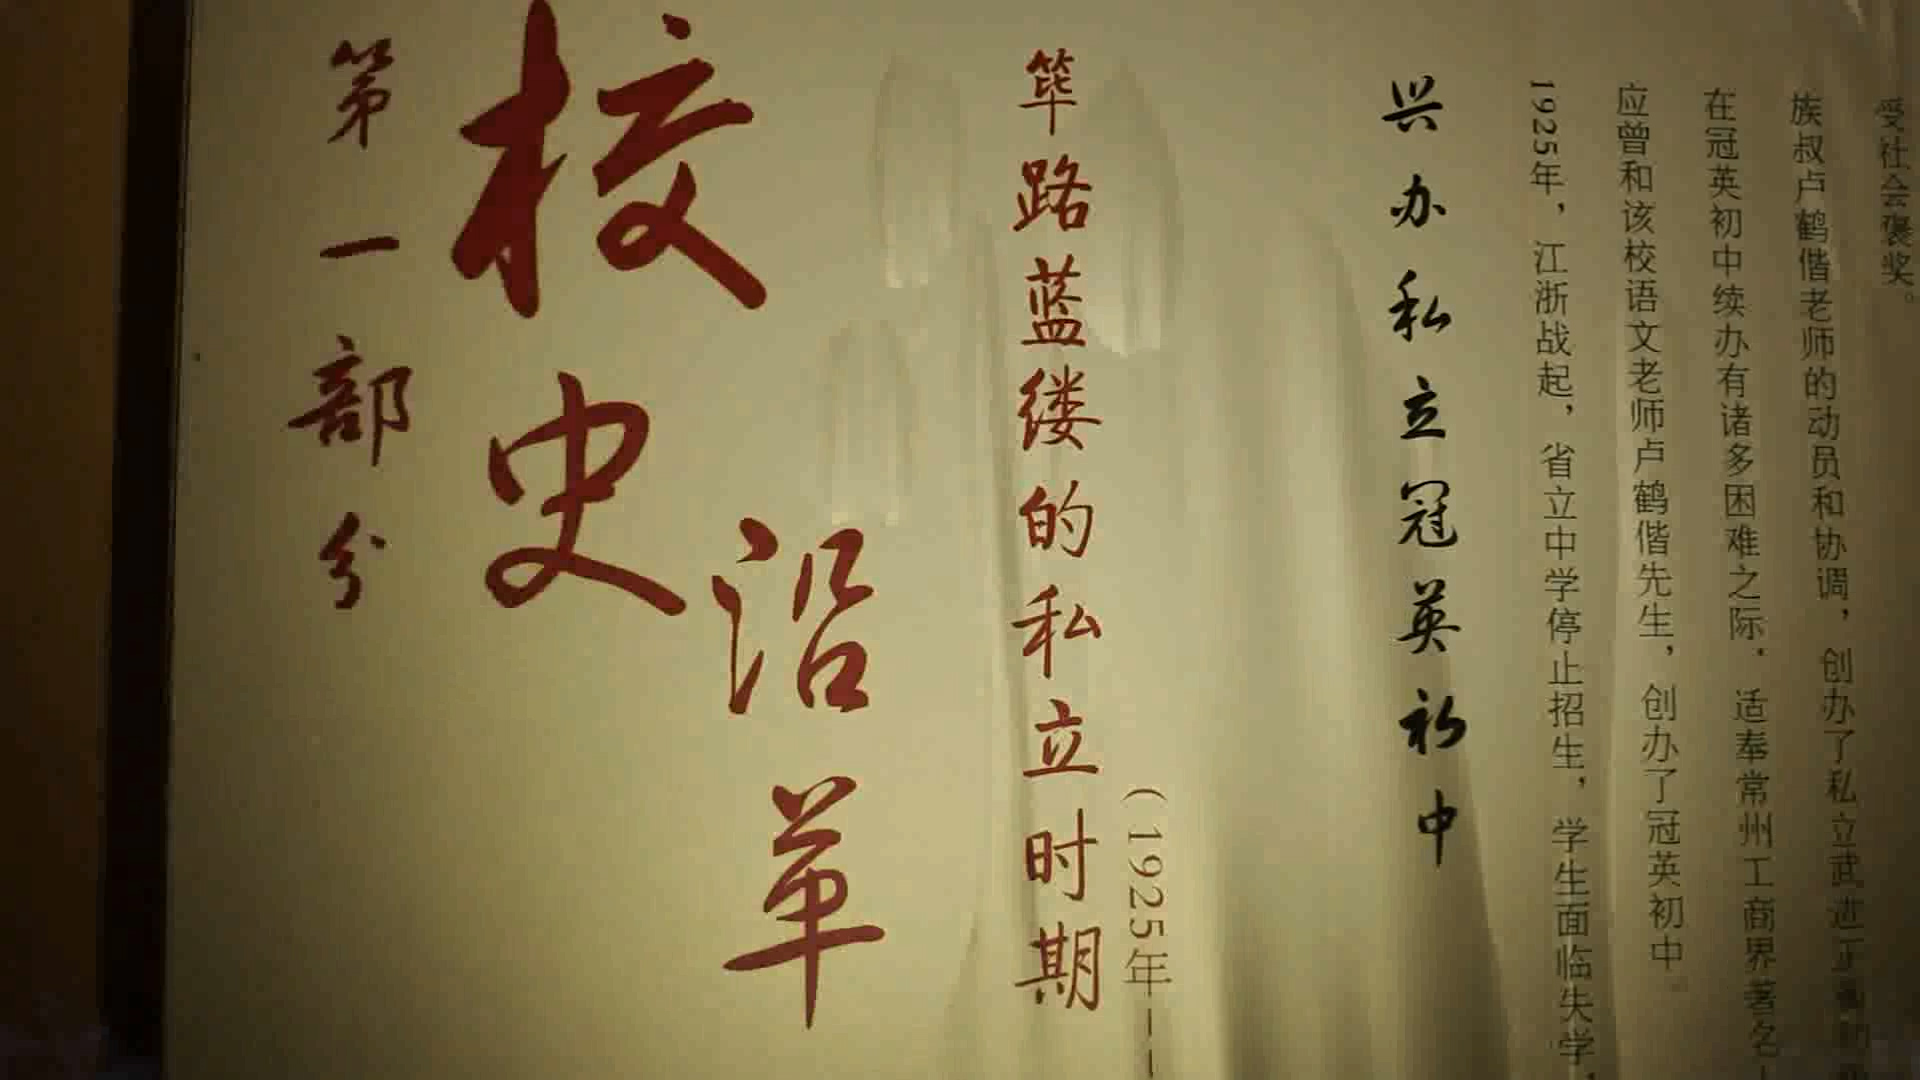 第一部分
校史
沿革
筚路蓝缕的私立时期
(1925年--
兴办私立冠英初中
1925年，江浙战起，省立中学停止招生，学生面临失学，
应曾和该校语文老师卢鹤偕先生，创办了冠英初中。
在冠英初中续办有诸多困难之际，适奉常州工商界著名
族叔卢鹤偕老师的动员和协调，创办了私立武进正
受社会褒奖。